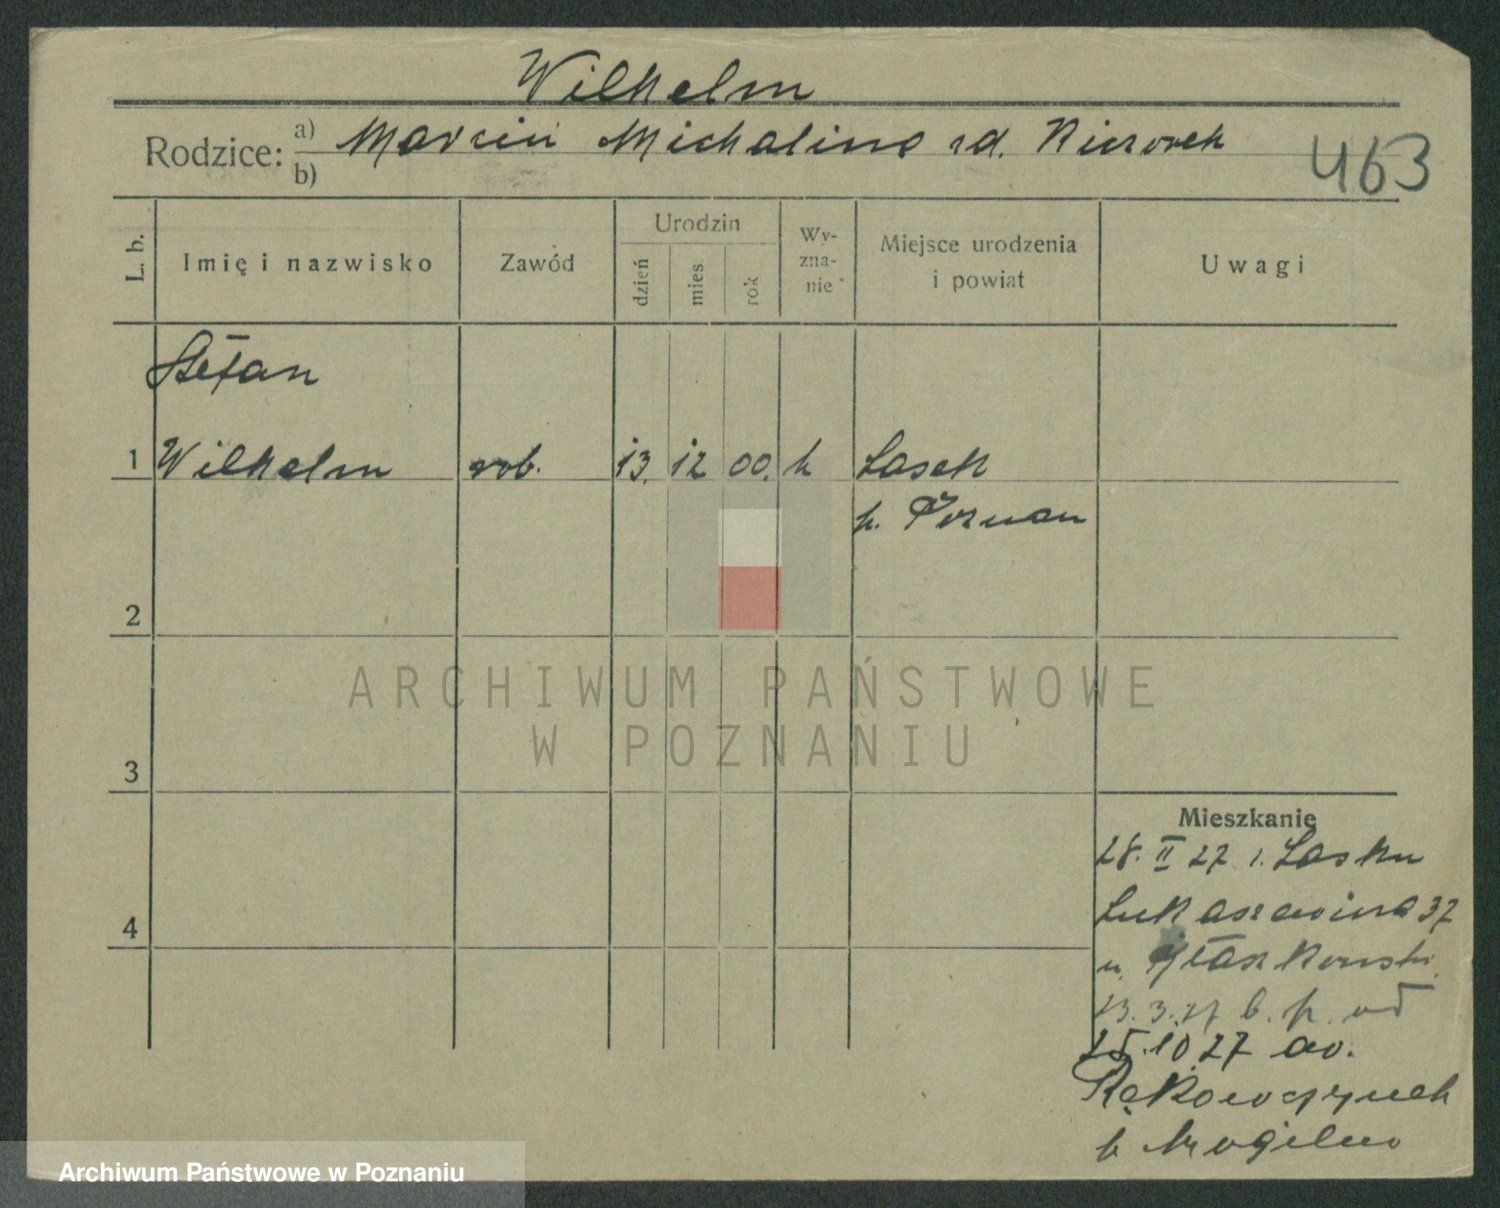 Wilhelm
Rodzice: a) Marcin Michalina zd. Wieczorek
b)
463
L. b.
Imię i nazwisko
Zawód
Urodzin
dzień
mies
rok
Wy-
zna-
nie
Miejsce urodzenia
i powiat
Uwagi
Stefan
1 Wilhelm rob. 13. 12 00. k Lasek
p. Poznan
2
3
4
Mieszkanie
28. II 27 z. Lasku
Łukaszewicza 37
u.
13. 3. 27 b. p. od
25.10.27 w.
p. Mogilno
ARCHIWUM PAŃSTWOWE
W POZNANIU
Archiwum Państwowe w Poznaniu